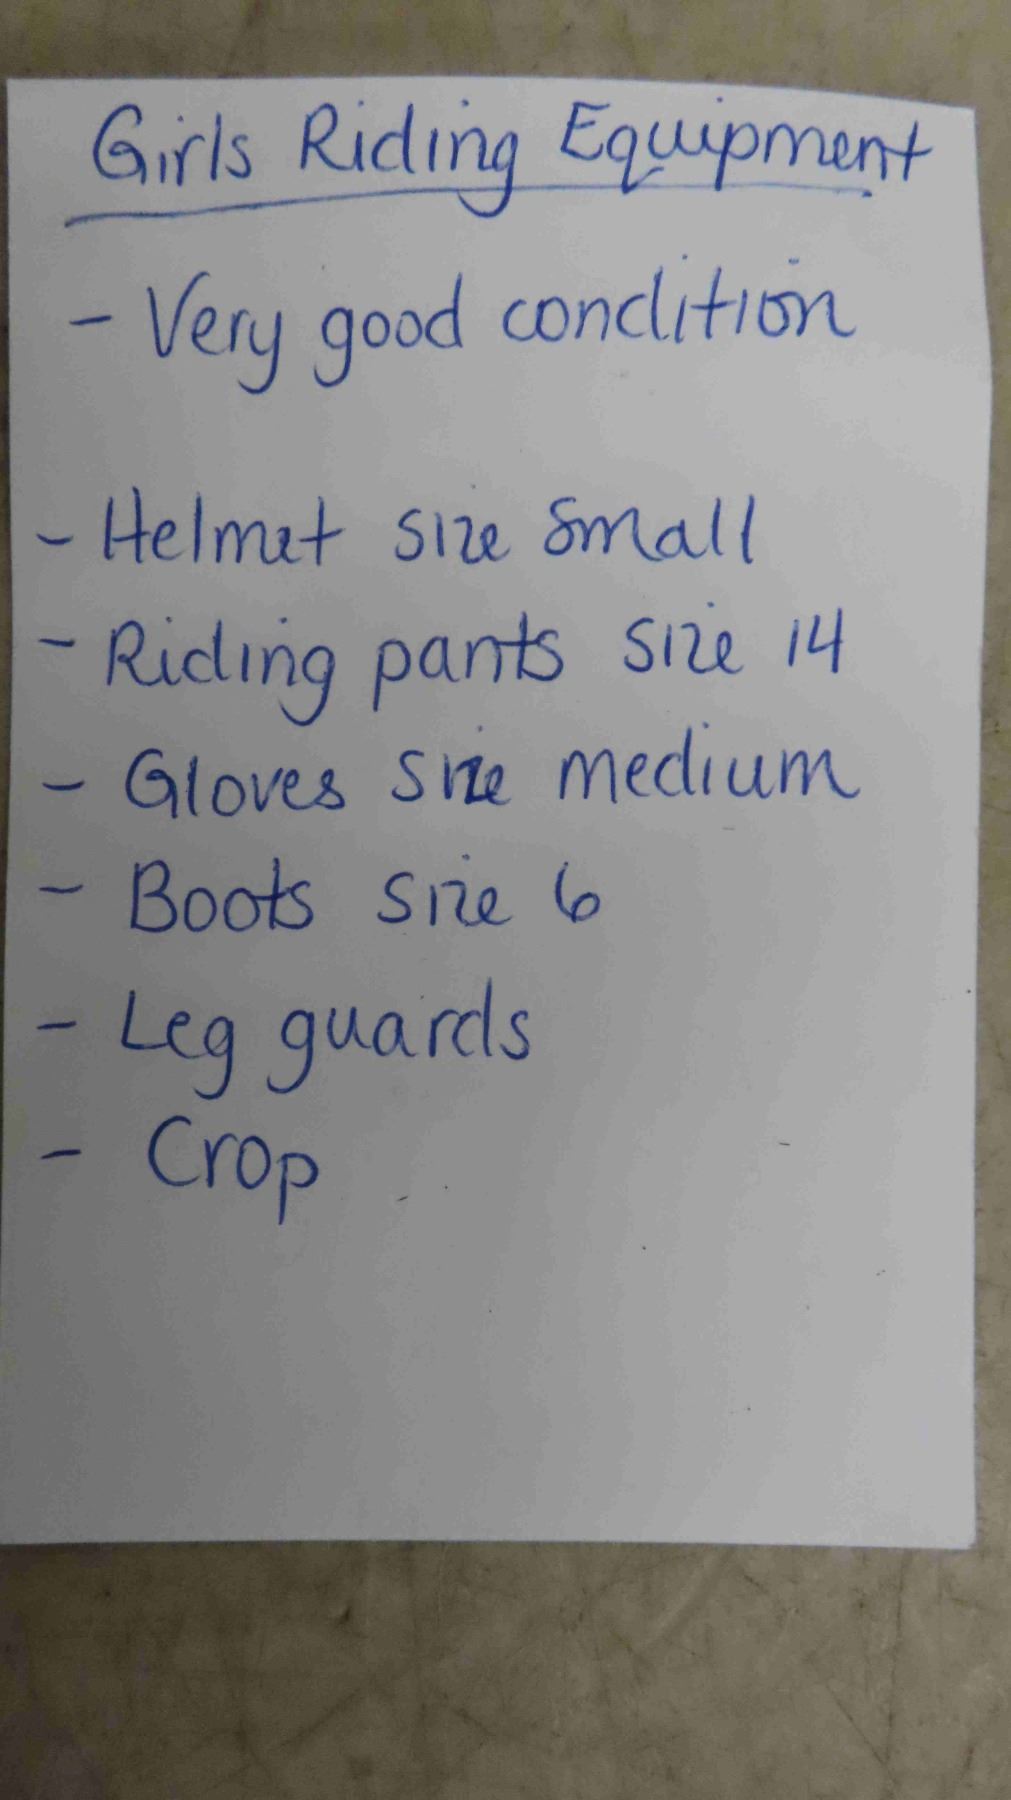 Girls Riding Equipment
- Very good condition
- Helmet size small
- Riding pants size 14
- Gloves size medium
- Boots size 6
- Leg guards
- Crop